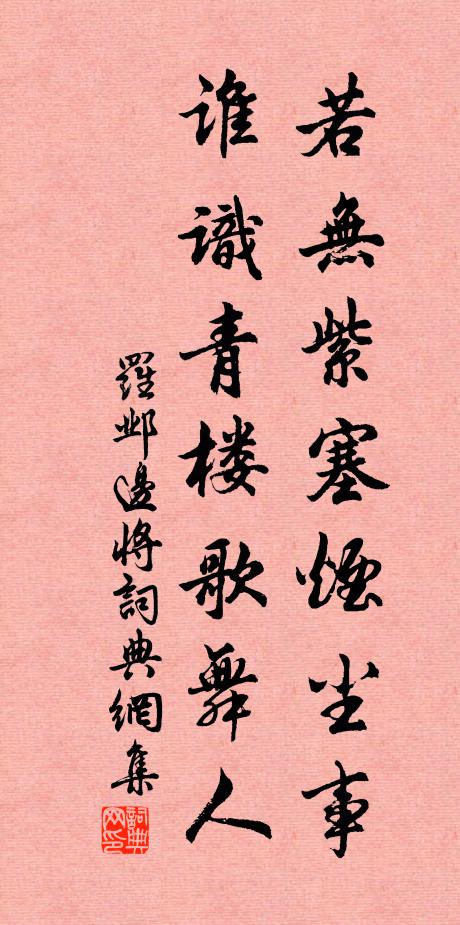 若無紫塞煙尘事
誰識青楼歌舞人
羅邺邊將詞典網集
詞典网印